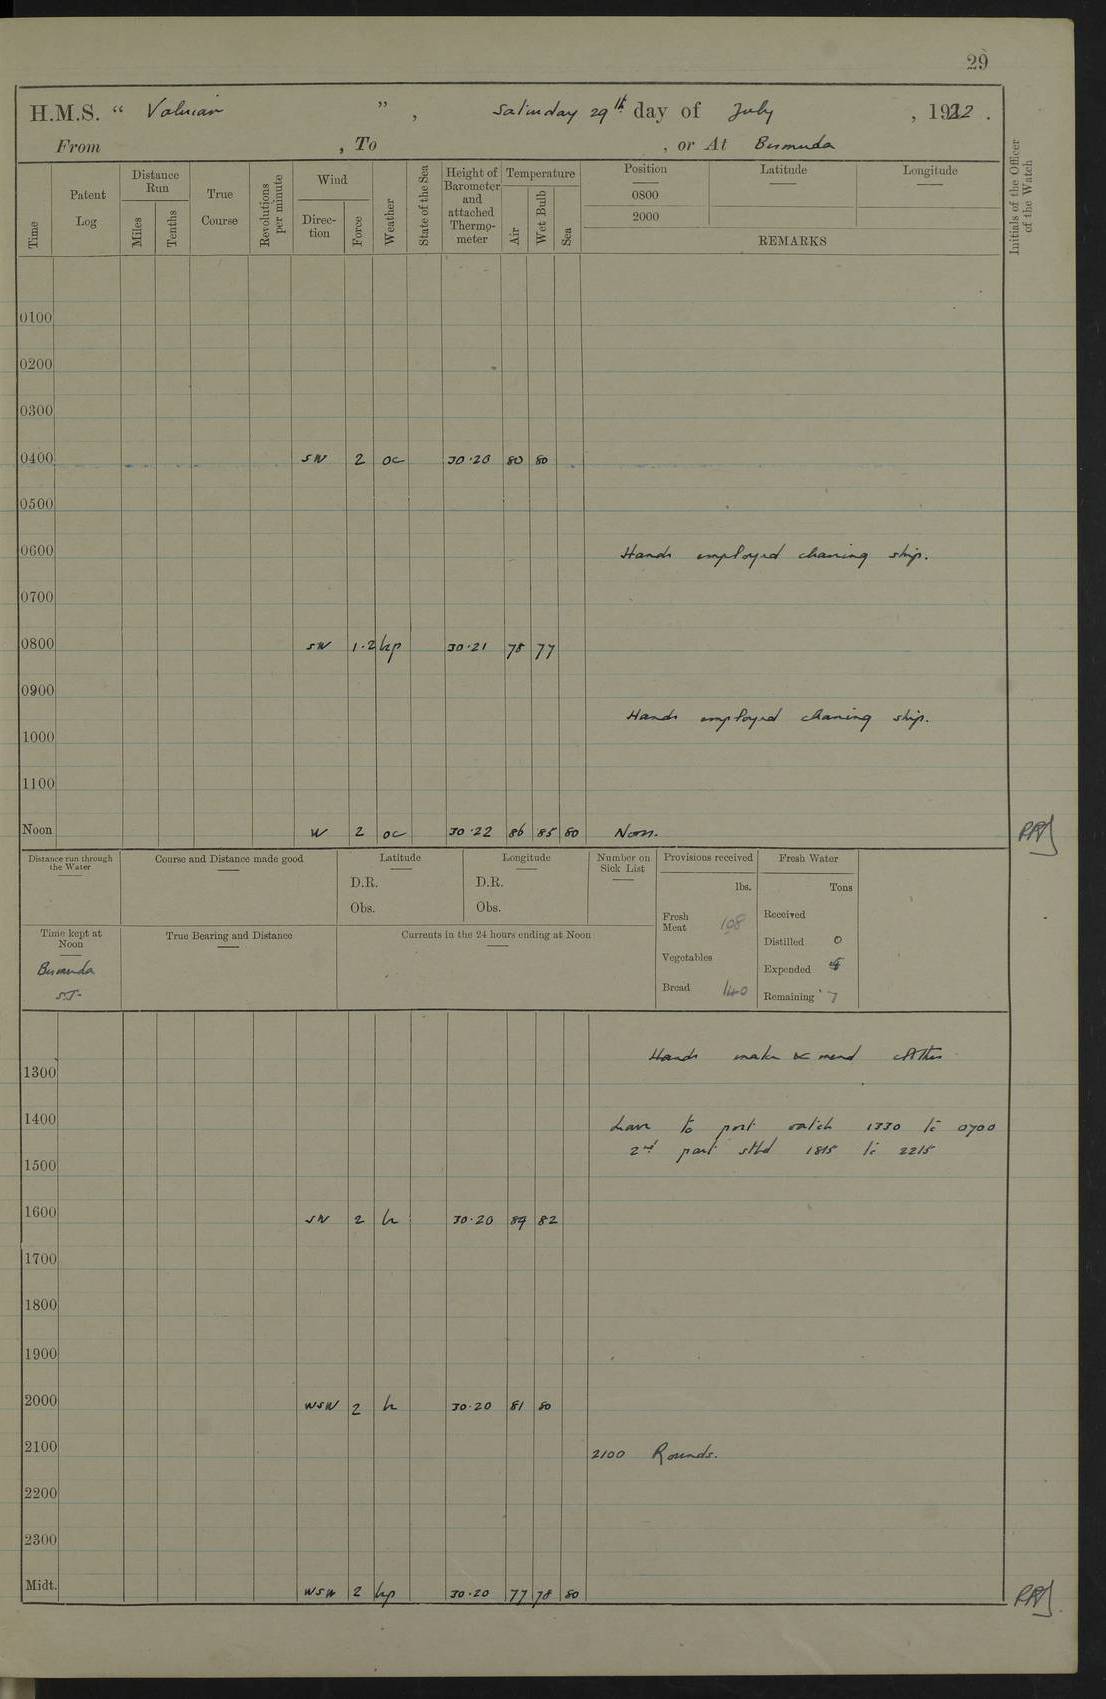 29
H.M.S. “ Valerian ” , Saturday 29th day of July , 1922 .
From , To , or At Bermuda
Time
Patent Log
Distance Run
Miles
Tenths
True Course
Revolutions per minute
Wind
Direc-tion
Force
Weather
State of the Sea
Height of Barometer and attached Thermo-meter
Temperature
Air
Wet Bulb
Sea
Position
0800
2000
Latitude
Longitude
REMARKS
Initials of the Officer of the Watch
0100
0200
0300
0400 SW 2 oc 30.20 80 80
0500
0600 Hands employed cleaning ship.
0700
0800 SW 1.2 hp 30.21 78 77
0900
Hands employed cleaning ship.
1000
1100
Noon W 2 oc 30.22 86 85 80 Noon.
Distance run through the Water
Course and Distance made good
Latitude
D.R.
Obs.
Longitude
D.R.
Obs.
Number on Sick List
Provisions received
lbs.
Fresh Meat 108
Vegetables
Bread 140
Fresh Water
Tons
Received
Distilled 0
Expended
Remaining 7
Time kept at Noon
Bermuda
S.T.
True Bearing and Distance
Currents in the 24 hours ending at Noon
Hands make & mend clothes
1300
1400 Leave to port watch 1330 to 0700
2nd part stbd 1815 to 2215
1500
1600 SW 2 h 30.20 84 82
1700
1800
1900
2000 WSW 2 h 30.20 81 80
2100 2100 Rounds.
2200
2300
Midt. WSW 2 hp 30.20 77 78 80